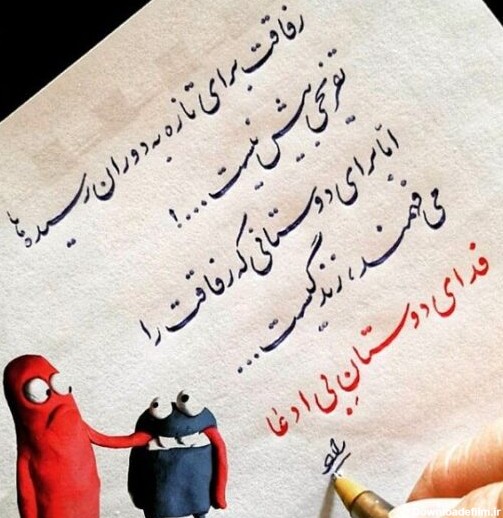 رفاقت برای تازه به دوران رسیده ها
تفریحی بیش نیست...!
امّا برای دوستانی که رفاقت را
می فهمند، زندگیست...
فدای دوستانِ بی ادعا